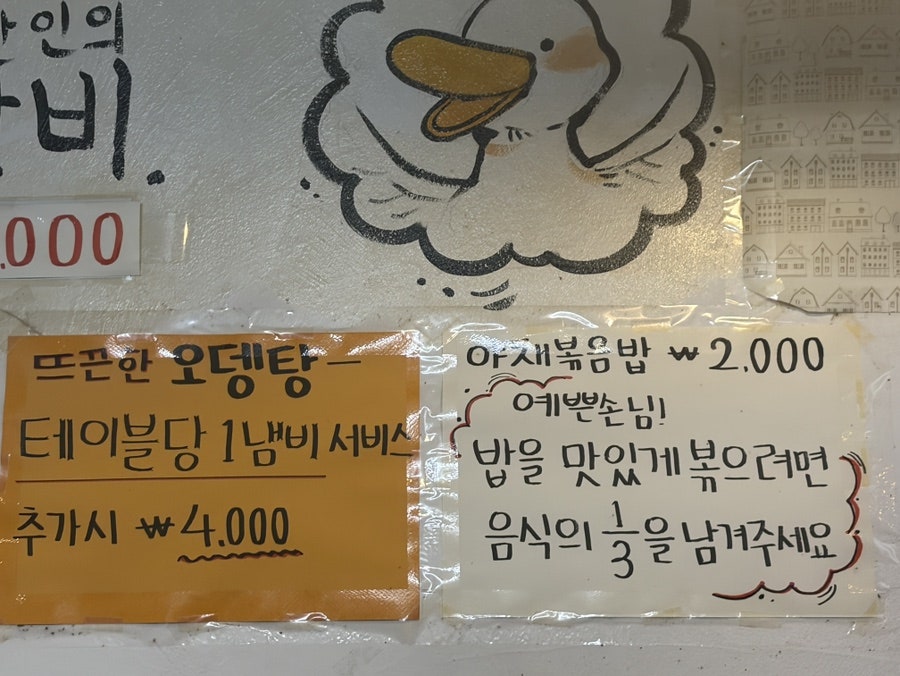 인의
비.
.000
뜨끈한 오뎅탕ー
테이블당 1냄비 서비스
추가시 ₩4.000
야채볶음밥 ₩2.000
예쁜손님!
밥을 맛있게 볶으려면
음식의 1/3을 남겨주세요